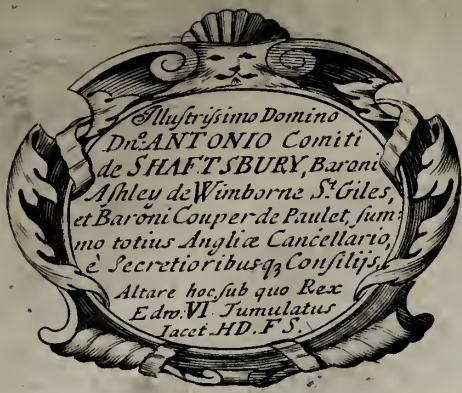 Illustrissimo Domino
Dno. ANTONIO Comiti
de SHAFTSBURY, Baroni
Ashley de Wimborne St. Giles,
et Baroni Couper de Paulet, sum:
mo totius Angliæ Cancellario,
è Secretioribusqꝫ Consilijs.
Altare hoc, sub quo Rex
Edw. VI Tumulatus
Iacet. HD. F S.